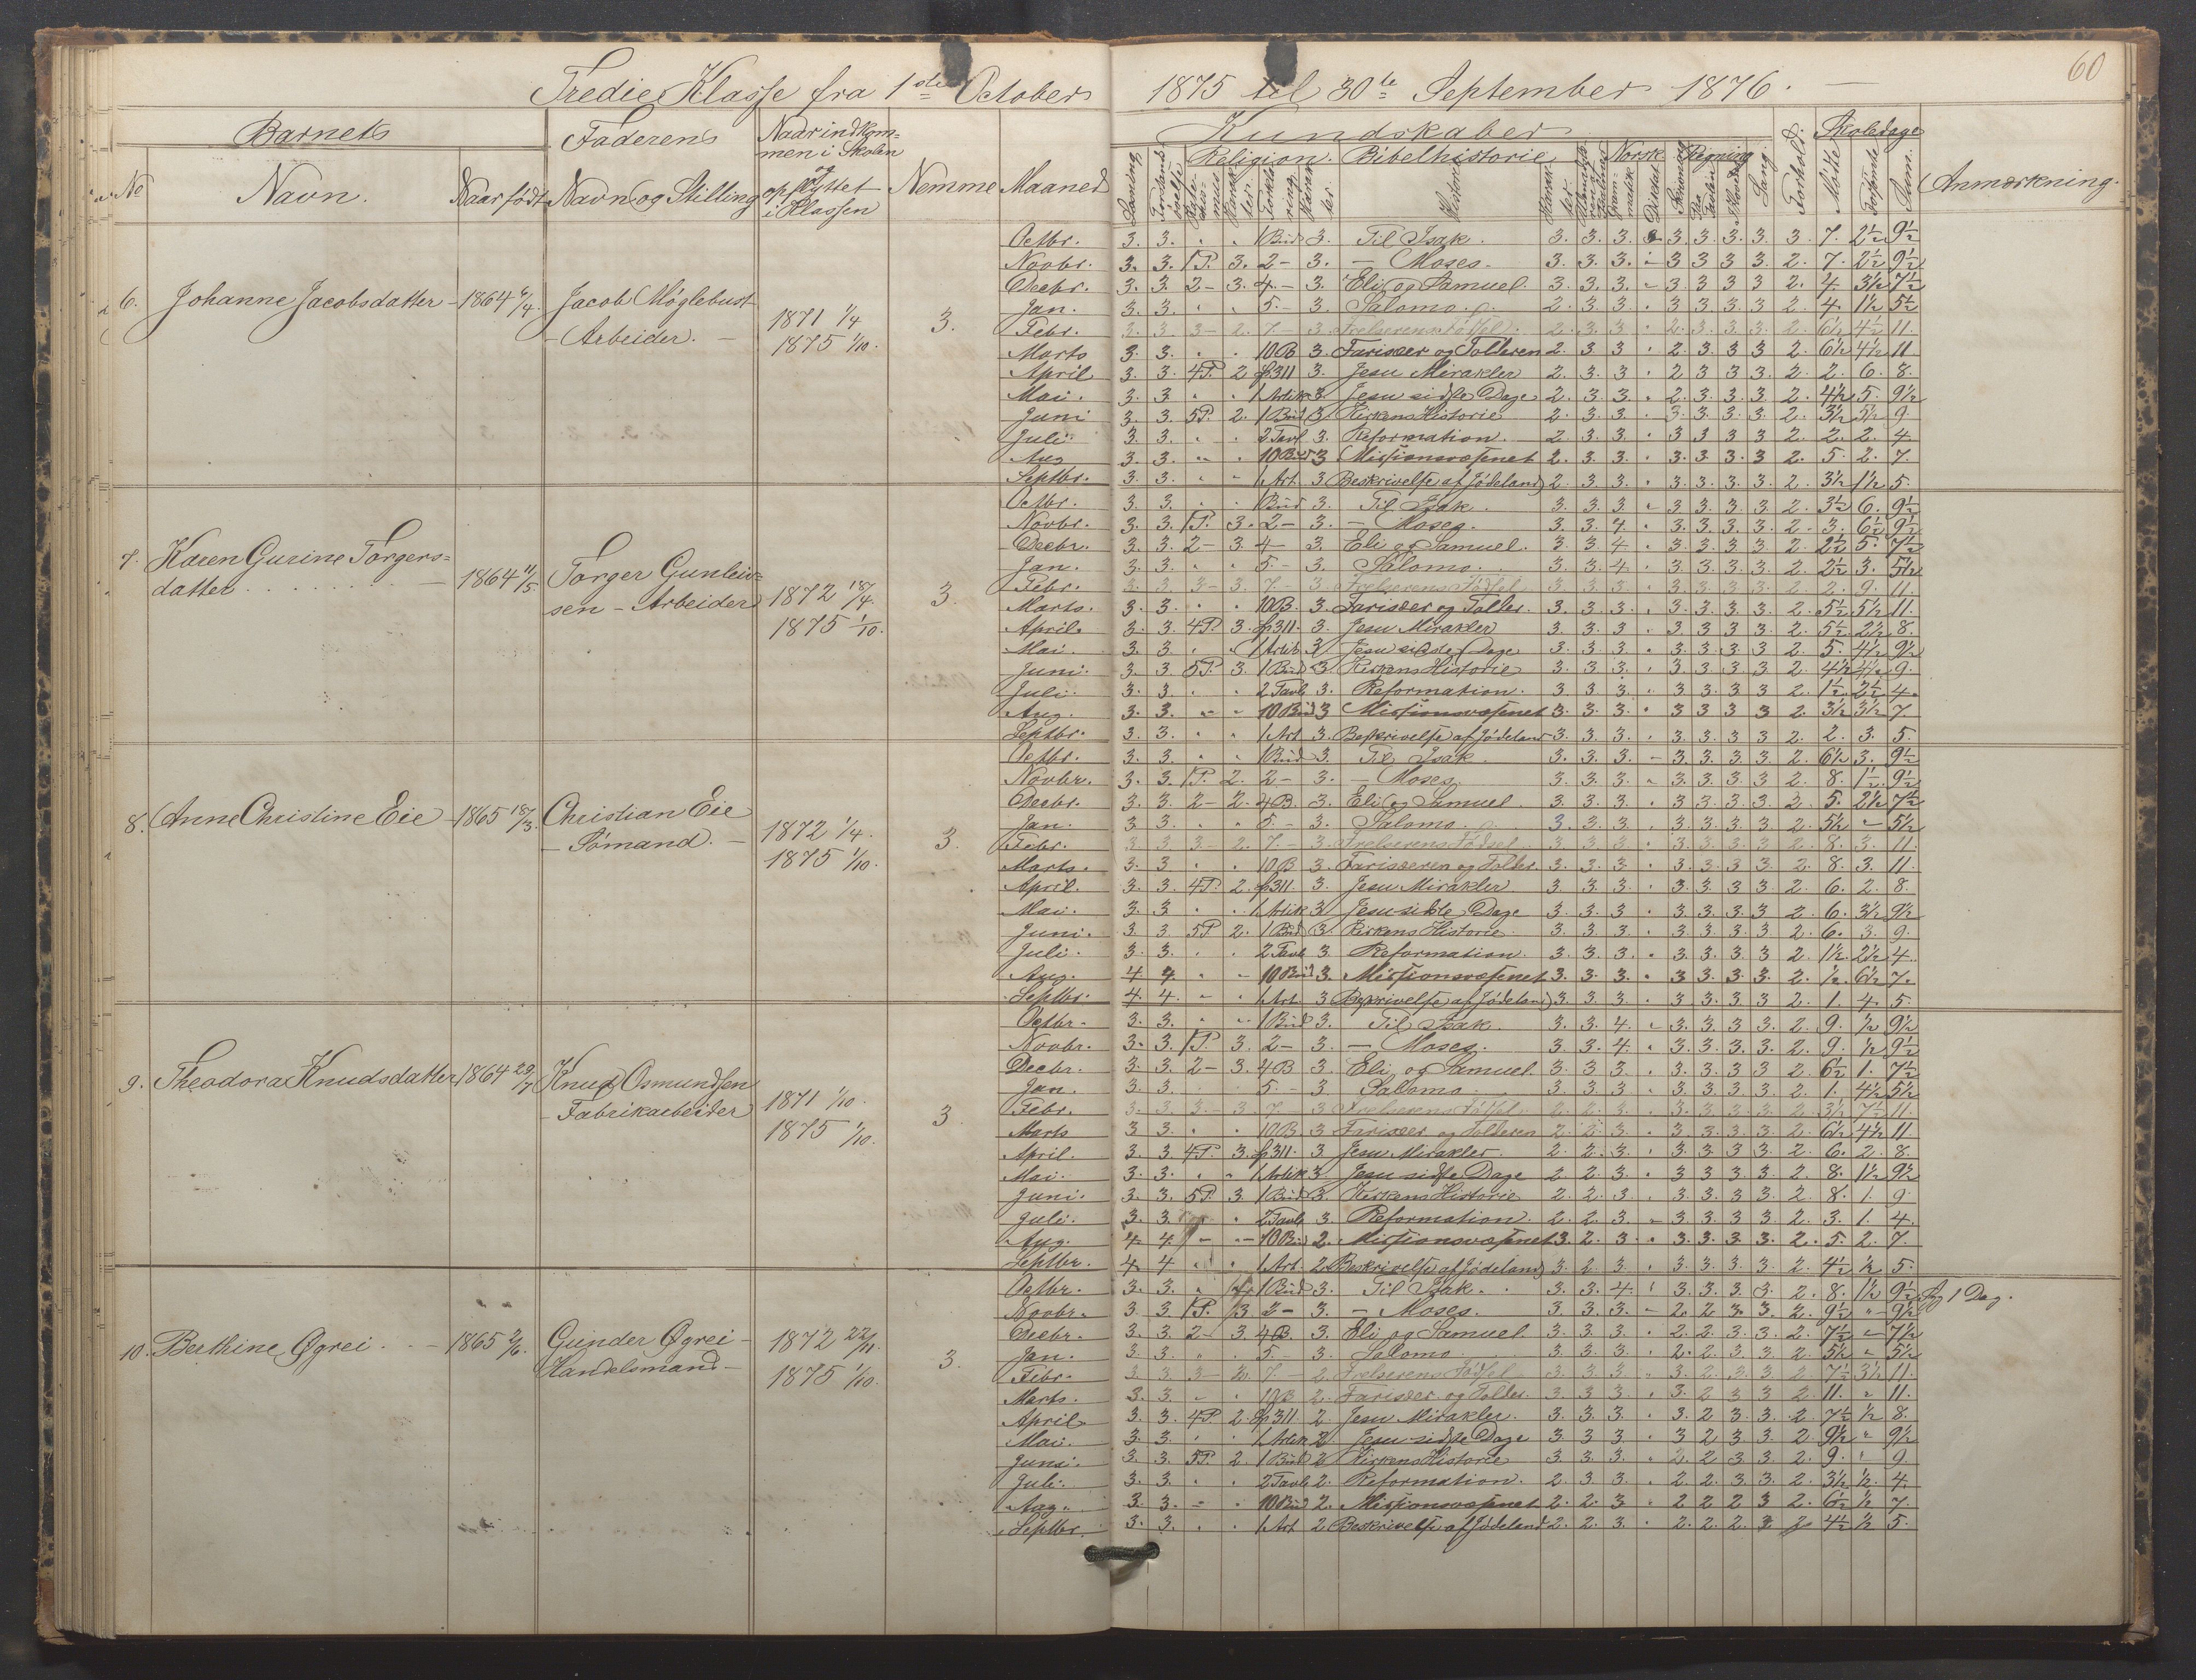 60
Tredie Klasse fra 1ste October 1875 til 30te September 1876.
Barnets Faderens Naar indkommen i Skolen og opflyttet i Klassen Nemme Maaned Kundskaber Forhold. Skoledage Anmærkning.
No Navn. Naar født Navn og Stilling Religion. Bibelhistorie Norsk Regning Sang. Mødte Forsømte Sum.
6. Johanne Jacobsdatter 1864 6/4. Jacob Møglebust - Arbeider. 1871 1/4 1875 1/10. 3.
Octbr. 3. 3. 1 Bud 3. Til Isak. 3. 3. 3. 3. 3. 3. 3. 3. 7. 2½ 9½
Novbr. 3. 3. 1P. 3. 2 - 3. - Moses. 3. 3. 3. - 3 3 3 3. 2. 7. 2½ 9½
Decbr. 3. 3. 2 - 3. 4. - 3. Eli og Samuel. 3. 3. 3. - 3. 3 3 3 2. 4. 3½ 7½
Jan. 3. 3. 5. - 3. Salomo. 2. 3. 3. 3. 3. 3. 3 2 4. 1½ 5½
Febr. 3. 3. 3 - 2. 7. - 3. Frelserens Fødsel. 2. 3. 3 2. 3. 3. 3. 2. 6½ 4½ 11.
Marts 3. 3. 10 B 3. Farisæer og Tolderen 2. 3 3 2. 3. 3 3 2. 6½ 4½ 11
April 3. 3. 4P. 2. p311 3. Jesu Mirakler 2. 3. 3 2 3 3 3. 2. 2. 6. 8.
Mai. 3. 3. 1 Artik 3. Jesu sidste Dage 2. 3. 3. 2. 3. 3. 3. 2. 4½ 5. 9½
Juni 3. 3. 5P. 2. 1 Bud 3. Kirkens Historie 2. 3. 3. 3. 3. 3. 3. 2. 3½ 5½ 9.
Juli. 3. 3. 2 Tavl 3. Reformation. 2. 3. 3. 3 3 3 3 2. 2. 2. 4.
Aug 3. 3. 10 Bud 3 Missionsvæsenet 2. 3. 3. 3. 3. 3. 3 2. 5. 2. 7.
Septbr. 3. 3. 1 Art. 3 Beskrivelse af Jødeland 2. 3. 3. 3. 3. 3. 3. 2. 3½ 1½ 5.
7. Karen Gurine Torgersdatter 1864 11/5. Torger Gunleivsen - Arbeider 1872 18/4. 1875 1/10. 3.
Octbr. 3. 3. 1 Bud 3. Til Isak. 3. 3. 3. - 3. 3. 3. 3. 2. 3½ 6. 9½
Novbr. 3. 3. 1P. 3. 2 - 3. - Moses. 3. 3. 4. 3. 3. 3. 3. 2. 3. 6½ 9½
Decbr. 3. 3. 2 - 3. 4 - 3. Eli og Samuel. 3. 3. 4. 3. 3. 3. 3. 2. 2½ 5. 7½
Jan. 3. 3. 5. - 3. Salomo. 3. 3. 4. 3. 3. 3. 3. 2. 2½ 3. 5½
Febr. 3. 3. 3 - 3. 7. - 3. Frelserens Fødsel 3. 3. 3. 3. 3. 3. 3. 2. 2. 9. 11.
Marts. 3. 3. 10 B. 3. Farisæer og Tolder. 3. 3. 3. 3. 3. 3. 3. 2. 5½ 5½ 11.
April. 3. 3. 4P. 3. p311. 3. Jesu Mirakler 3. 3. 3 3. 3 3 3. 2. 5½ 2½ 8.
Mai. 3. 3. 1 Artik 3 Jesu sidste Dage 3. 3. 3. 3. 3. 3. 3 2. 5. 4½ 9½
Juni. 3. 3. 5P. 3. 1 Bud 3. Kirkens Historie 3. 3. 3. 3. 3. 3. 3 2. 4½ 4½ 9.
Juli. 3. 3. 2 Tavle 3. Reformation. 3. 3. 3. 3 3. 3 3 2. 1½ 2½ 4.
Aug. 3. 3. 10 Bud 3 Missionsvæsenet 3. 3. 3. 3 3 3 3 2. 3½ 3½ 7.
Septbr. 3. 3. 1 Art 3. Beskrivelse af Jødeland 3. 3. 3. 3. 3. 3. 3 2. 2. 3. 5.
8. Anne Christine Eie 1865 18/3. Christian Eie - Sømand. 1872 1/4. 1875 1/10. 3.
Octbr. 3. 3. 1 Bud 3. Til Isak. 3. 3. 3. - 3. 3. 3. 3. 2 6½ 3. 9½
Novbr. 3. 3. 1P. 2. 2 - 3. - Moses. 3. 3. 3. 3. 3. 3. 3 2. 8. 1½ 9½
Decbr. 3. 3. 2 - 2. 4 B. 3. Eli og Samuel. 3. 3. 3. 3. 3. 3. 3 2. 5. 2½ 7½
Jan. 3. 3. 5. - 3. Salomo. 3. 3. 3. 3. 3. 3. 3 2. 5½ - 5½
Febr. 3 3 3 - 2. 7. - 3. Frelserens Fødsel 3. 3. 3. 3. 3. 3. 3 2. 8. 3. 11.
Marts. 3. 3 10 B 3. Farisæeren og Tolder. 3. 3. 3. 3. 3. 3. 3 2. 8 3. 11.
April. 3. 3. 4P. 2. p311. 3. Jesu Mirakler. 3. 3. 3. 3. 3. 3. 3 2. 6. 2. 8.
Mai. 3. 3 1 Artik 3 Jesu sidste Dage 3. 3. 3 3. 3. 3. 3 2. 6. 3½ 9½
Juni. 3. 3. 5P 2. 1 Bud 3. Kirkens Historie. 3. 3. 3. 3. 3. 3. 3 2. 6. 3. 9.
Juli. 3. 3. 2 Tavle 3. Reformation. 3. 3. 3. 3. 3. 3. 3 2. 1½ 2½ 4.
Aug. 4 4. 10 Bud 3. Missionsvæsenet 3. 3. 3. 3 3. 3. 3 2. ½. 6½ 7.
Septbr. 4. 4. 1 Art. 3 Beskrivelse af Jødeland 3. 3. 3. 3 3. 3. 3 2. 1. 4. 5.
9. Theodora Knudsdatter 1864 29/7 Knud Osmundsen - Fabrikarbeider 1871 1/10. 1875 1/10. 3
Octbr. 3. 3. 1 Bud 3. Til Isak. 3. 3. 4. - 3. 3. 3 3. 2. 9. ½ 9½
Novbr. 3. 3. 1P. 3. 2 - 3. - Moses. 3. 3. 4. 3. 3. 3. 3. 2. 9. ½ 9½
Decbr. 3. 3. 2 - 3. 4 B 3. Eli og Samuel. 3. 3. 3. 3. 3. 3. 3 2. 6½ 1. 7½
Jan. 3. 3. 5. - 3 Salomo. 3. 3. 3 3. 3. 3. 3. 2. 1. 4½ 5½
Febr. 3. 3. 3 - 3. 7. 3 Frelserens Fødsel. 2. 2. 3. 3. 3. 3. 3. 2. 3½ 7½ 11.
Marts 3 3. 10 B 3 Farisæer og Tolderen 2. 2. 3. 3 3. 3. 3. 2. 6½ 4½ 11
April. 3. 3. 4P. 3. p311. 3 Jesu Mirakler. 2. 2. 3. 3. 3. 3. 3 2. 6. 2. 8.
Mai. 3. 3. 1 Artik 3. Jesu sidste Dage 2. 2. 3. 3 3 3 3 2. 8. 1½ 9½
Juni. 3. 3. 5P 3 1 Bud 3. Kirkens Historie 2. 2. 3. 3. 3. 3 3 2. 8. 1. 9
Juli. 3. 3. 2 Tavle 3. Reformation. 2. 2. 3. - 3. 3. 3 3 2. 3. 1. 4.
Aug. 4. 4. 10 Bud 2. Missionsvæsenet 3. 2. 3. 3. 3. 3. 3. 2. 5. 2. 7.
Septbr. 4. 4 1 Art. 2 Beskrivelse af Jødeland 3. 2. 3. 3. 3. 3. 3. 2. 4½ ½ 5.
10. Berthine Øgrei 1865 2/6. Gunder Øgrei - Handelsmand - 1872 22/11. 1875 1/10. 3.
Octbr. 3. 3. 1 Bud 3. Til Isak. 3. 3. 4. 3. 3. 3. 3. 2. 8. 1½ 9½ 1 Dag.
Novbr. 3. 3. 1P. 3. 2 - 3. - Moses. 3. 3. 3. - 2. 2 3. 3. 2. 9½ 9½
Decbr. 3. 3. 2 - 3. 4 B. 3. Eli og Samuel. 3. 3. 3. 2. 2. 3. 3. 2. 7½ - 7½
Jan. 3 3. 5. - 3. Salomo 3. 3. 3. 2. 2 3. 3. 2. 5½ 5½
Febr. 3. 3 3 - 2. 7. - 2. Frelserens Fødsel 3. 3. 3. 3. 2. 3. 3 2 7½ 3½ 11.
Marts. 3. 3. 10 B 2. Farisæer og Tolder. 3. 3. 3. 3. 2 3 3 2. 11. 11.
April. 3. 3. 4P. 2. p311. 2. Jesu Mirakler. 3. 3. 3. 3. 2 3. 3. 2. 7½ ½ 8.
Mai. 3. 3. 1 Artik 2. Jesu sidste Dage 3. 3. 3 3 2 3. 3 2 9½ 9½
Juni. 3. 3. 5P. 2. 1 Bud 2 Kirkens Historie 3. 3. 3. 2. 2 3 3 2. 9. 9.
Juli. 3. 3. 2 Tavle 2. Reformation. 2. 3. 3. 2. 2. 3 3. 2. 3½ ½. 4.
Aug. 3. 3. 10 Bud 2. Missionsvæsenet 2. 2. 3 2 2 2 3 2. 6½ ½ 7.
Septbr. 3. 3. 1 Art 2 Beskrivelse af Jødeland 2. 2. 3. 2. 2. 2. 3 2 4½ ½ 5.